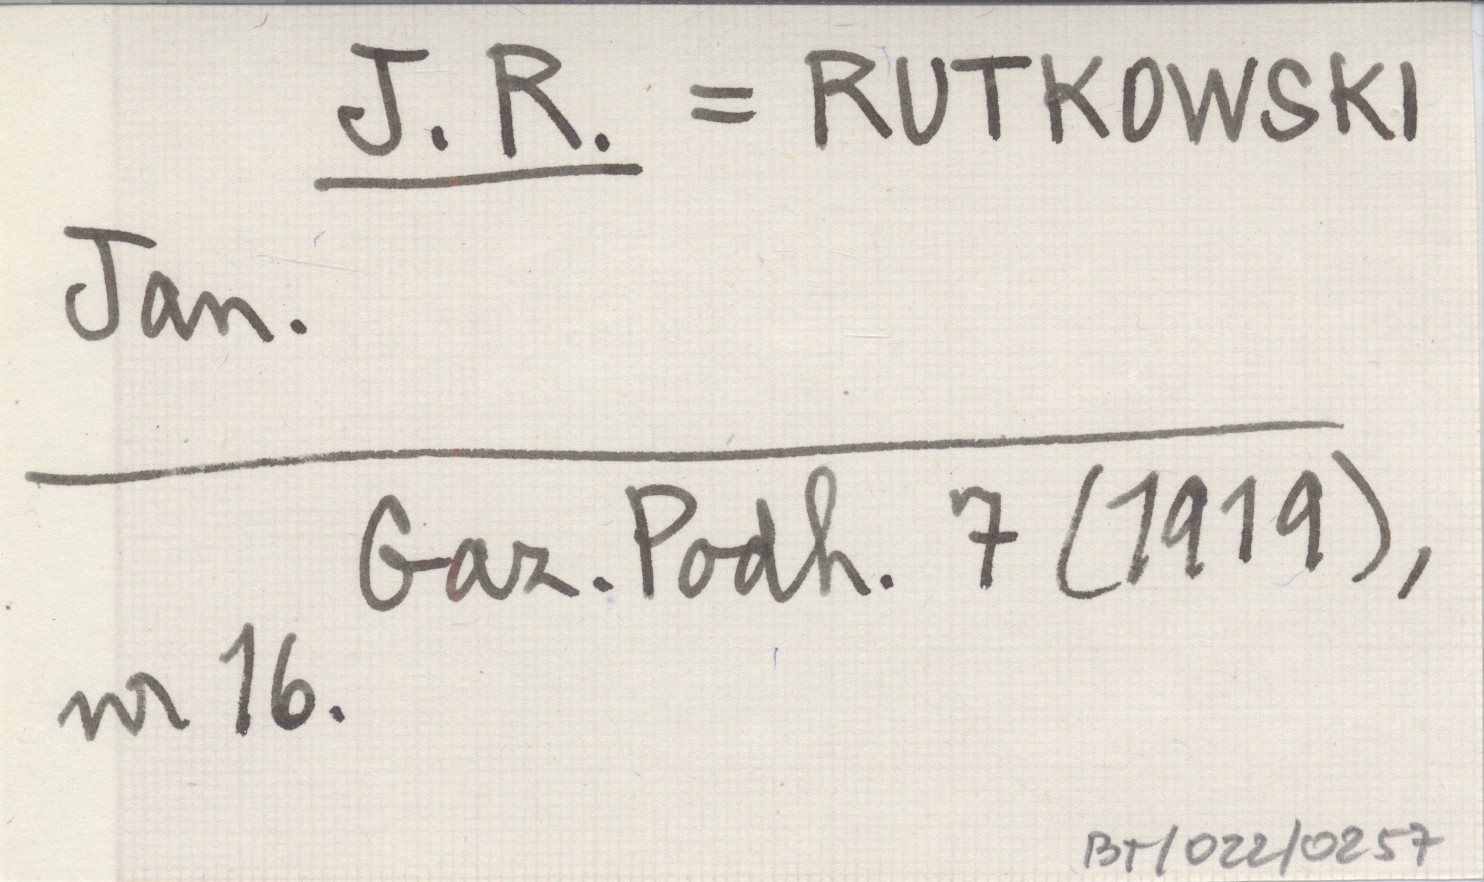 J. R. = RUTKOWSKI
Jan.
Gaz. Podh. 7 (1919),
nr 16.
BT/022/0257